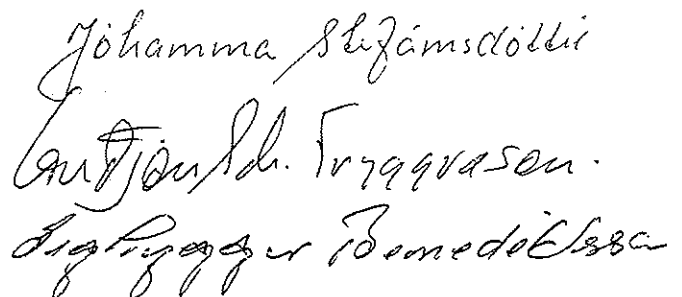 Jóhanna Stefánsdóttir
Guðjón Sch. Tryggvason.
Sigtryggur Benedikts